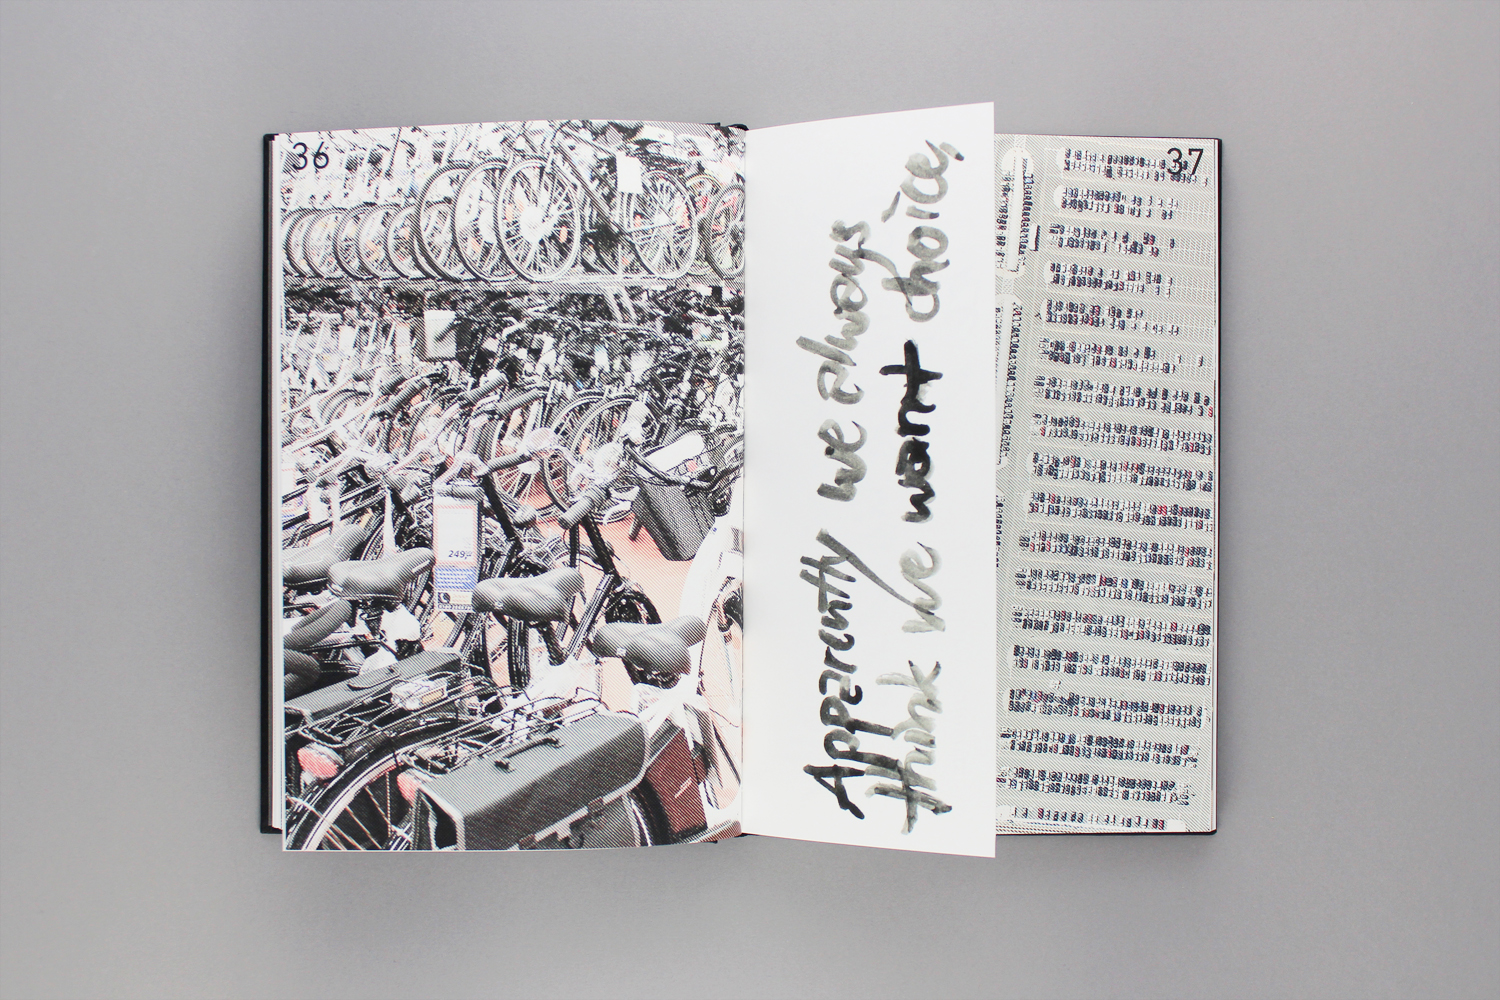 36
249,-
Apparently we always
think we want choice,
37